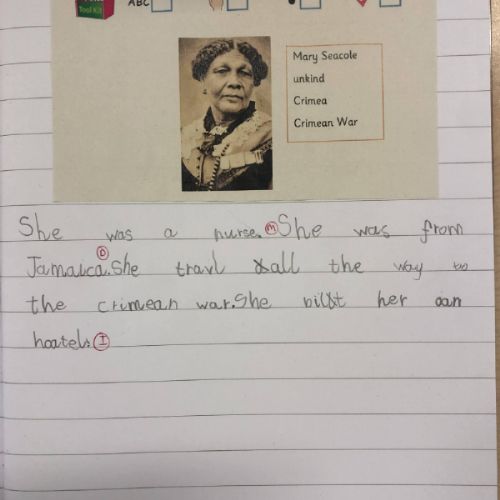 Tool Kit
ABC
Mary Seacole
unkind
Crimea
Crimean War
She was a nurse. M She was from
Jamaica. D She travl all the way to
the crimean war. She billt her oan
hoatel. I